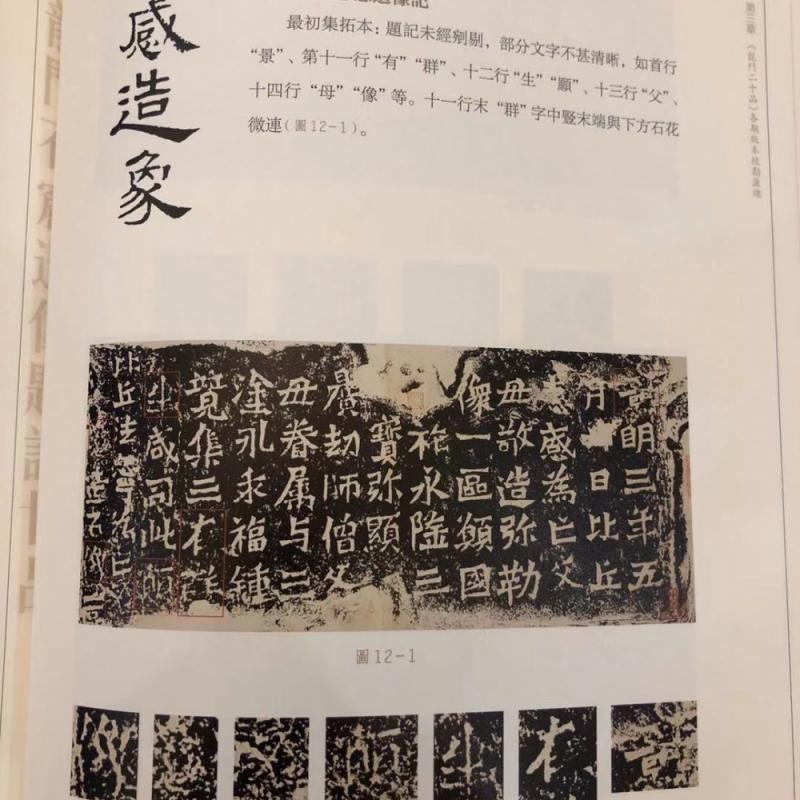 感造象
最初集拓本：題記未經剜剔，部分文字不甚清晰，如首行
“景”、第十一行“有”“群”、十二行“生”“願”、十三行“父”、
十四行“母”“像”等。十一行末“群”字中豎末端與下方石花
微連（圖12-1）。
第三章 《龍門二十品》各期版本校勘匯總
明三年五
月日比丘
感為亡父
母敬造弥勒
像一區願國
祚永隆三
寶弥顯
曠劫師僧父
母眷属与三
塗永乖福鍾
竟集三有群
生咸同此願
比丘法寧為亡
圖12-1